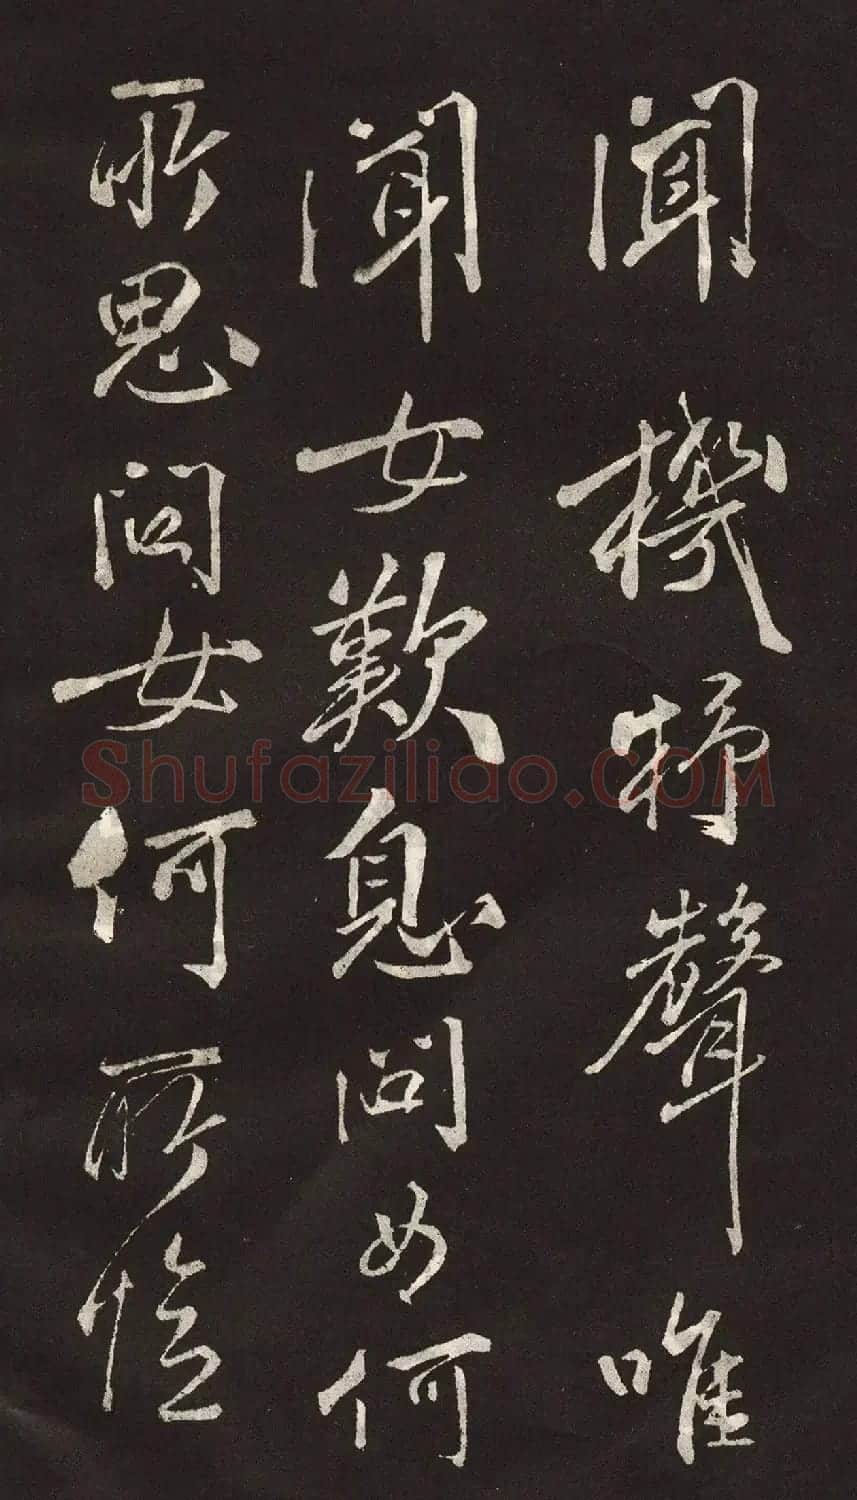 聞機杼聲唯
聞女歎息問女何
所思問女何所憶
Shufaziliao.COM